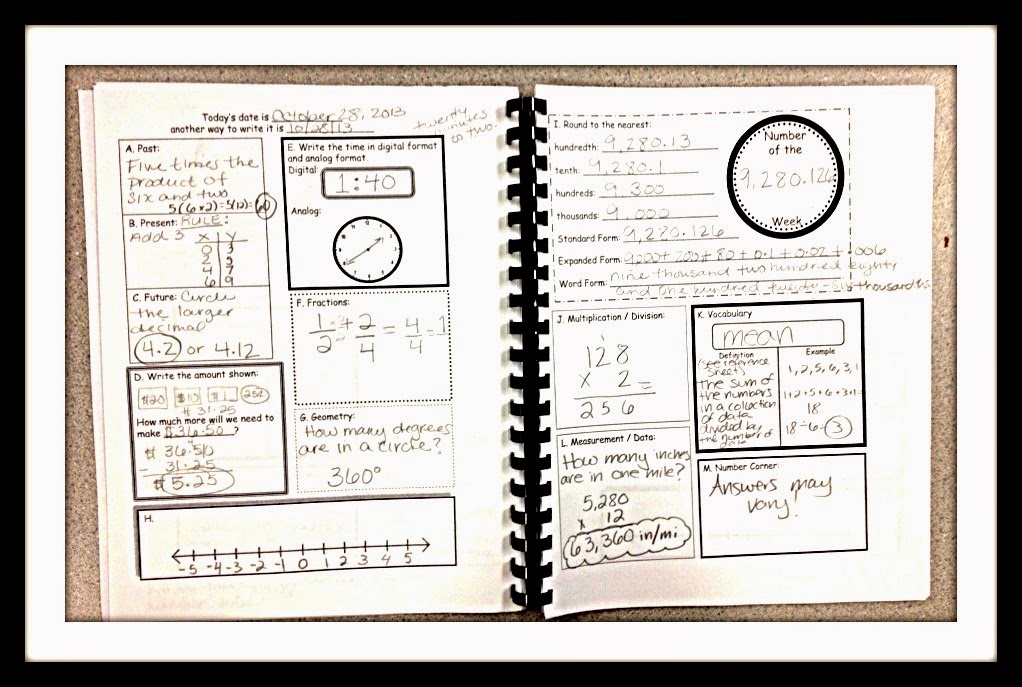 Today's date is October 28, 2013
another way to write it is 10/28/13
twenty
minutes
to two.
A. Past:
Five times the
product of
six and two
5(6×2)=5(12)=60
B. Present: RULE:
Add 3
X Y
0 3
2 5
4 7
6 9
C. Future: Circle
the larger
decimal
4.2 or 4.12
D. Write the amount shown:
$20 $10 $1 25¢
$ 31.25
How much more will we need to
make $36.50?
$ 36.50
- 31.25
$5.25
E. Write the time in digital format
and analog format.
Digital:
1:40
Analog:
F. Fractions:
1/2 = 2/4 = 4/4 = 1
G. Geometry:
How many degrees
are in a circle?
360°
H.
-5 -4 -3 -2 -1 0 1 2 3 4 5
I. Round to the nearest:
hundredth: 9,280.13
tenth: 9,280.1
hundreds: 9,300
thousands: 9,000
Standard Form: 9,280.126
Expanded Form: 9000 + 200 + 80 + 0.1 + 0.02 + .006
Word Form: nine thousand two hundred eighty
and one hundred twenty-six thousandths
Number
of the
9,280.126
Week
J. Multiplication / Division:
1
128
x 2 =
256
K. Vocabulary
mean
Definition
(see reference
sheet)
The sum of
the numbers
in a collection
of data
divided by
the number of
data
Example
1, 2, 5, 6, 3, 1
1+2+5+6+3+1=
18
18÷6=3
L. Measurement / Data:
How many inches
are in one mile?
5,280
x 12
63,360 in/mi
M. Number Corner:
Answers may
vary!